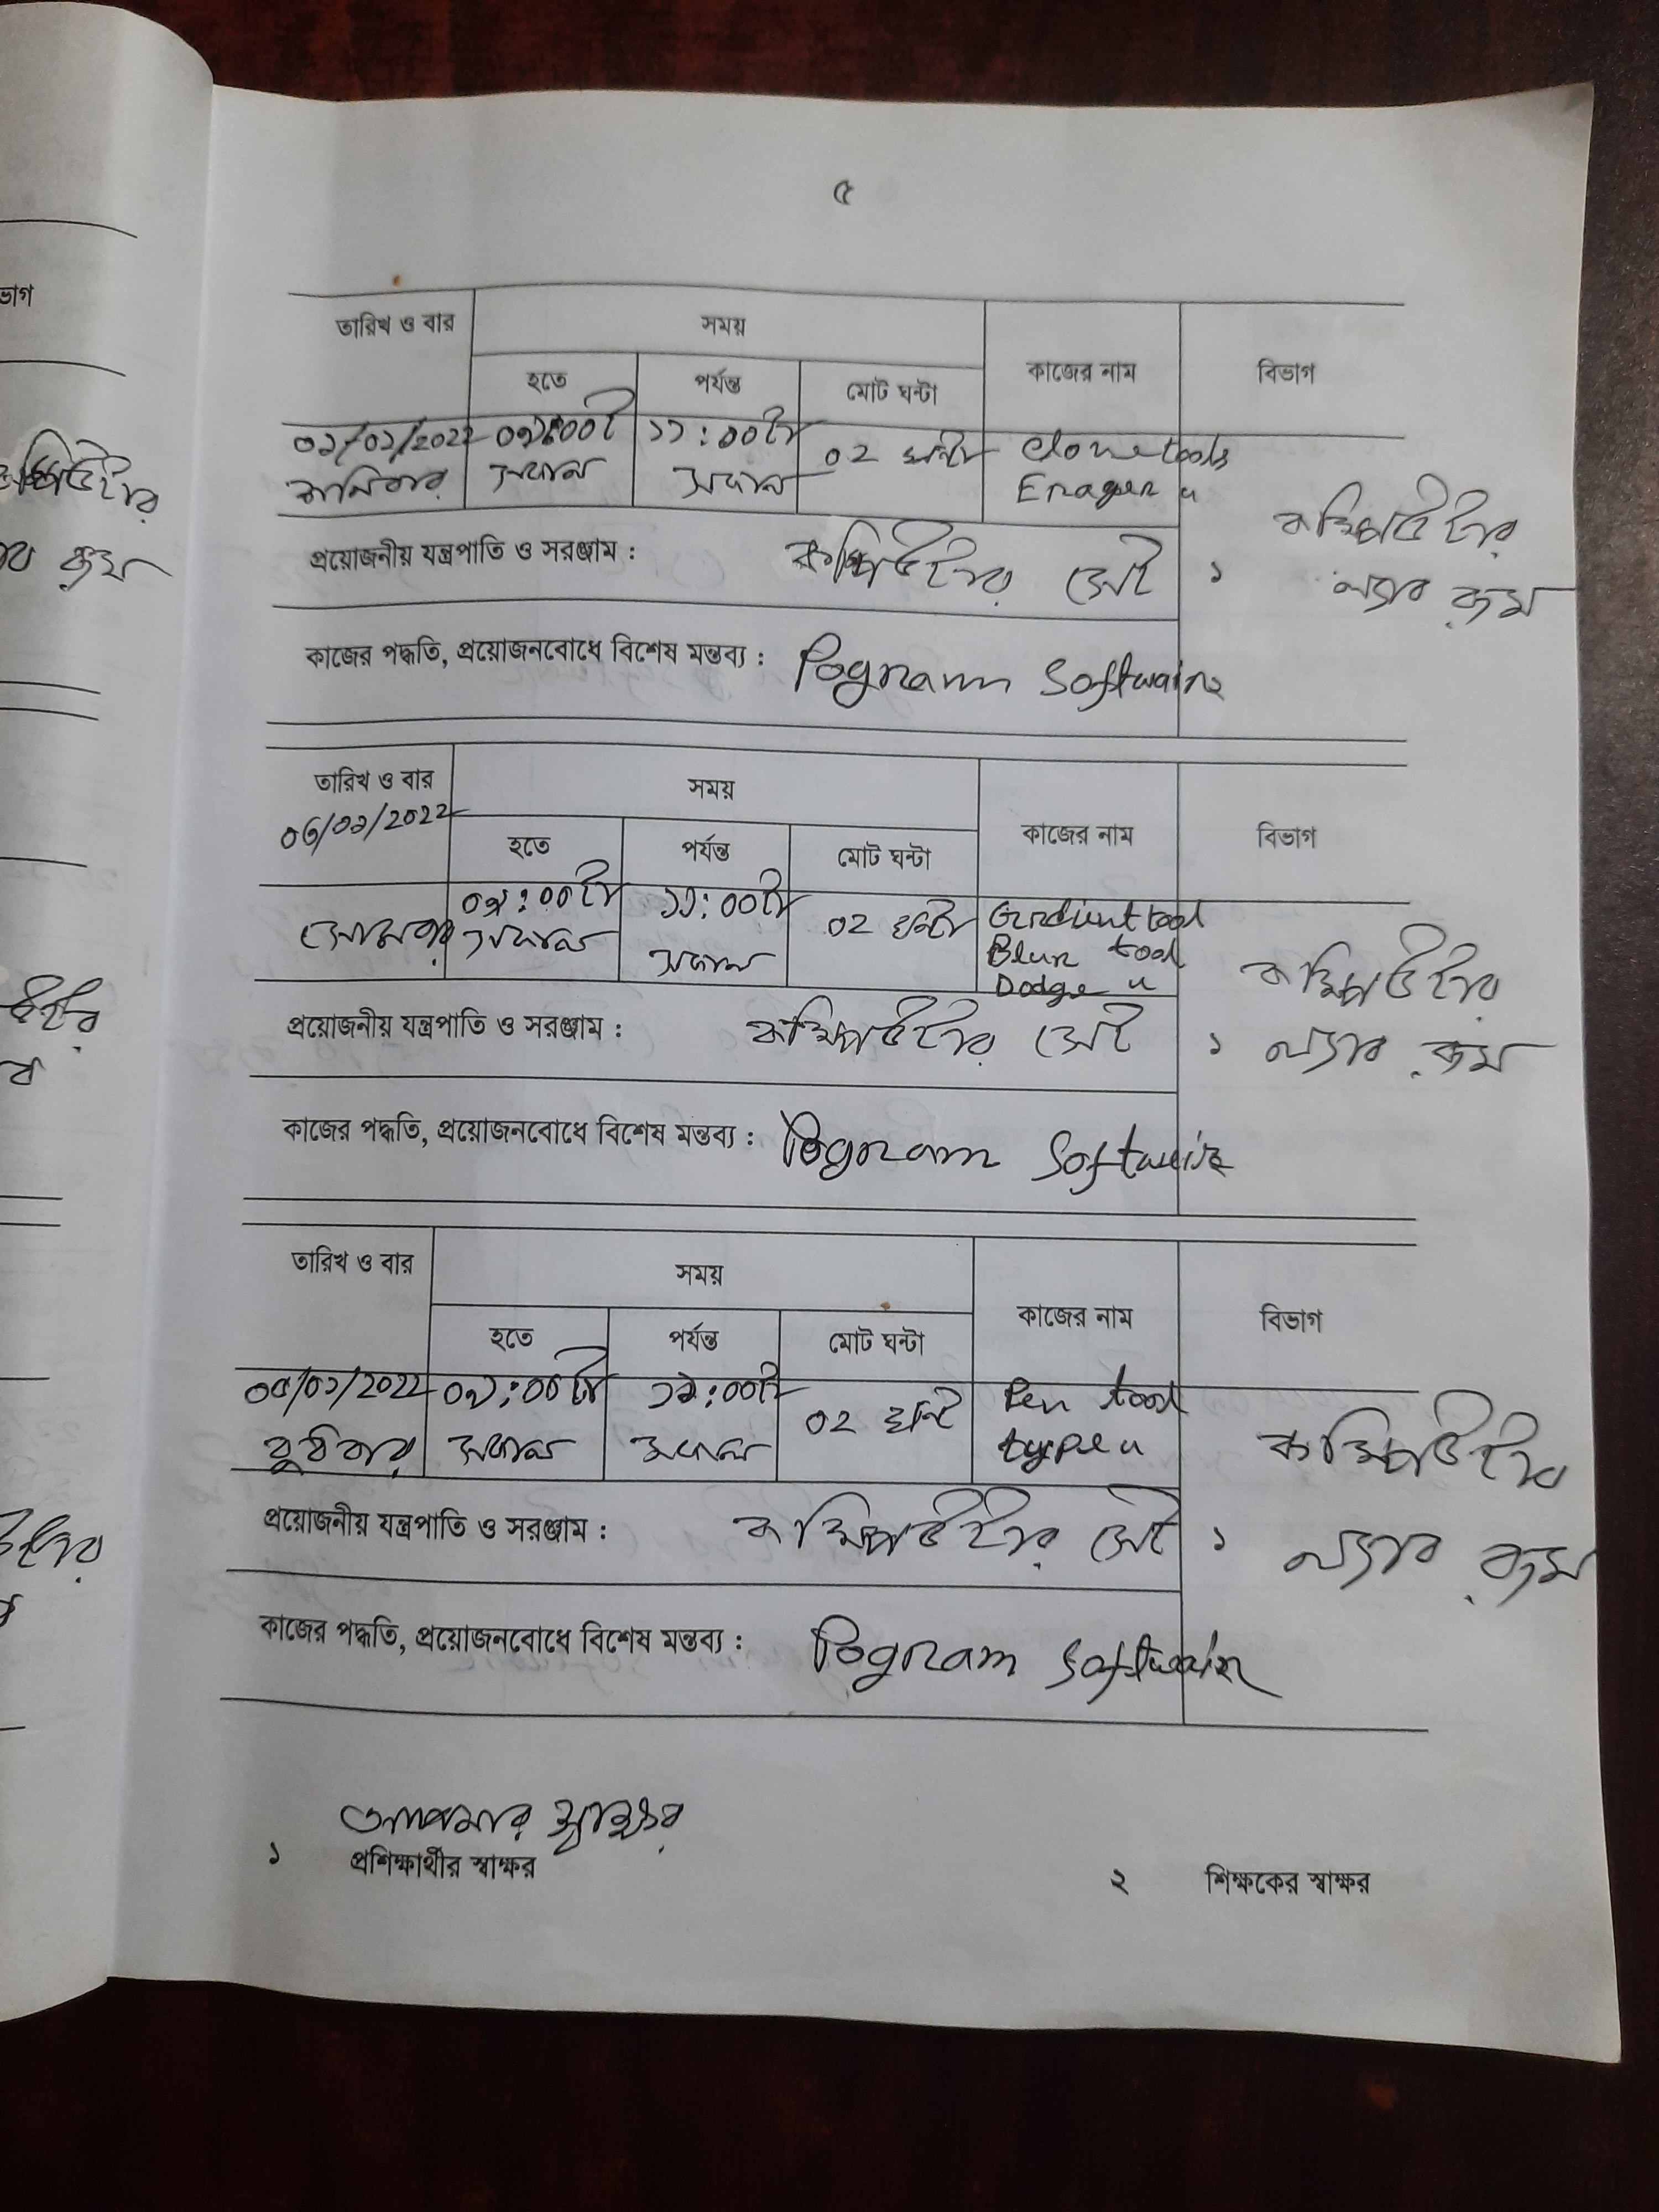 ৫
তারিখ ও বার সময় কাজের নাম বিভাগ
হতে পর্যন্ত মোট ঘন্টা
০১/০১/2022 ০৯:০০টা ১১:০০টা ০2 ঘন্টা Clone tools
শনিবার সকাল সকাল Erager "
কম্পিউটার
প্রয়োজনীয় যন্ত্রপাতি ও সরঞ্জাম : কম্পিউটার সেট ১ ল্যাব রুম
কাজের পদ্ধতি, প্রয়োজনবোধে বিশেষ মন্তব্য : Pogram Softwair
তারিখ ও বার সময় কাজের নাম বিভাগ
০৩/০১/2022
হতে পর্যন্ত মোট ঘন্টা
সোমবার ০৯:০০টা ১১:০০টা ০2 ঘন্টা Gradient tool
সকাল সকাল Blur tool
Dodge "
কম্পিউটার
প্রয়োজনীয় যন্ত্রপাতি ও সরঞ্জাম : কম্পিউটার সেট ১ ল্যাব রুম
কাজের পদ্ধতি, প্রয়োজনবোধে বিশেষ মন্তব্য : Pogram Softwair
তারিখ ও বার সময় কাজের নাম বিভাগ
হতে পর্যন্ত মোট ঘন্টা
০৫/০১/2022 ০৯:০০টা ১১:০০টা ০2 ঘন্টা Pen tool
বুধবার সকাল সকাল type "
কম্পিউটার
প্রয়োজনীয় যন্ত্রপাতি ও সরঞ্জাম : কম্পিউটার সেট ১ ল্যাব রুম
কাজের পদ্ধতি, প্রয়োজনবোধে বিশেষ মন্তব্য : Pogram Softwair
স্বাক্ষর
১ প্রশিক্ষার্থীর স্বাক্ষর ২ শিক্ষকের স্বাক্ষর